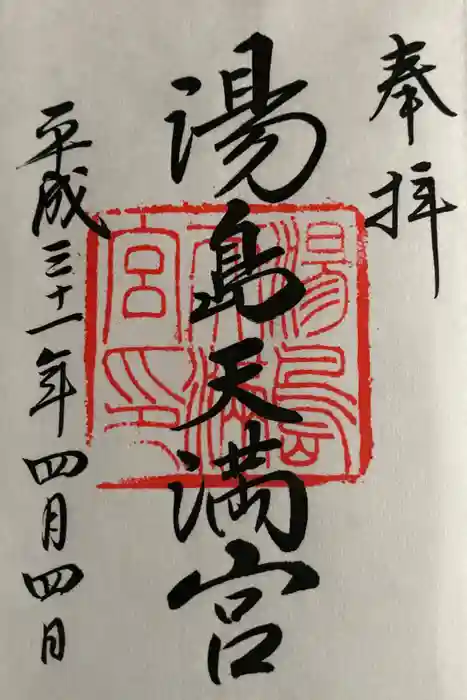 奉拝
湯島天満宮
平成三十一年四月四日
湯島
天満
宮印